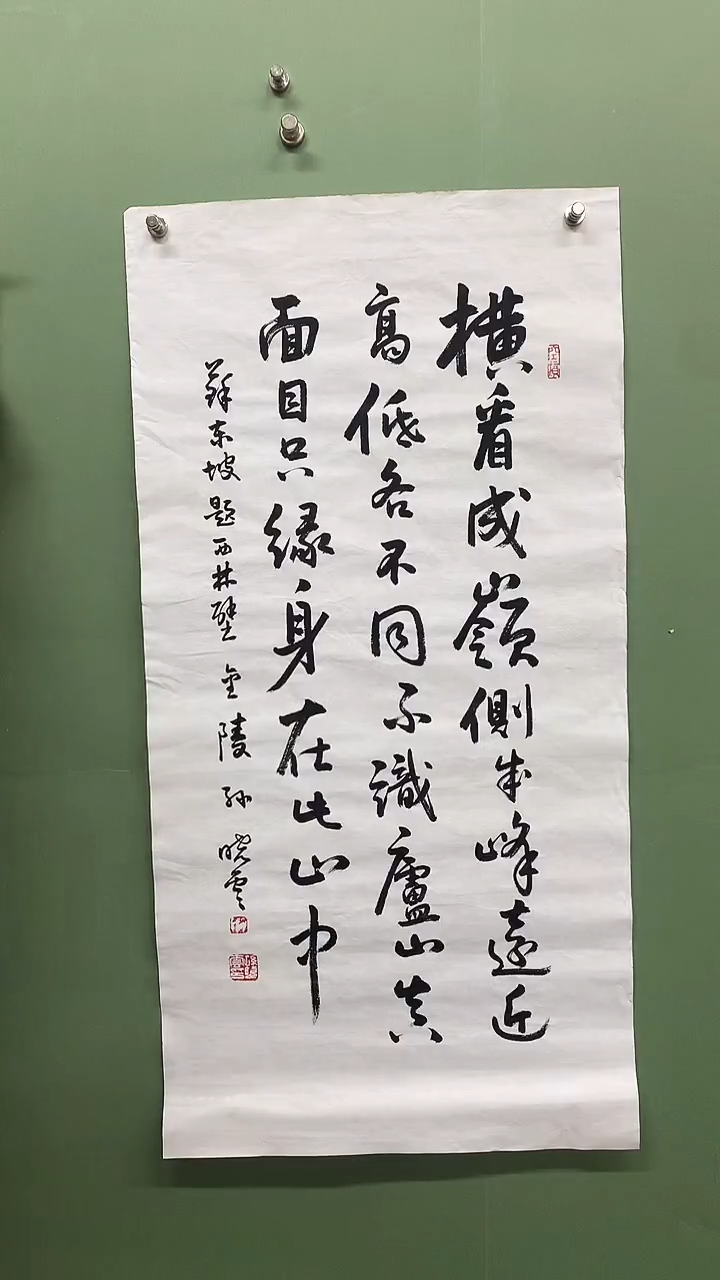 横看成嶺側成峰遠近
高低各不同不識廬山真
面目只緣身在此山中
蘇东坡题西林壁 金陵 孙晓雲